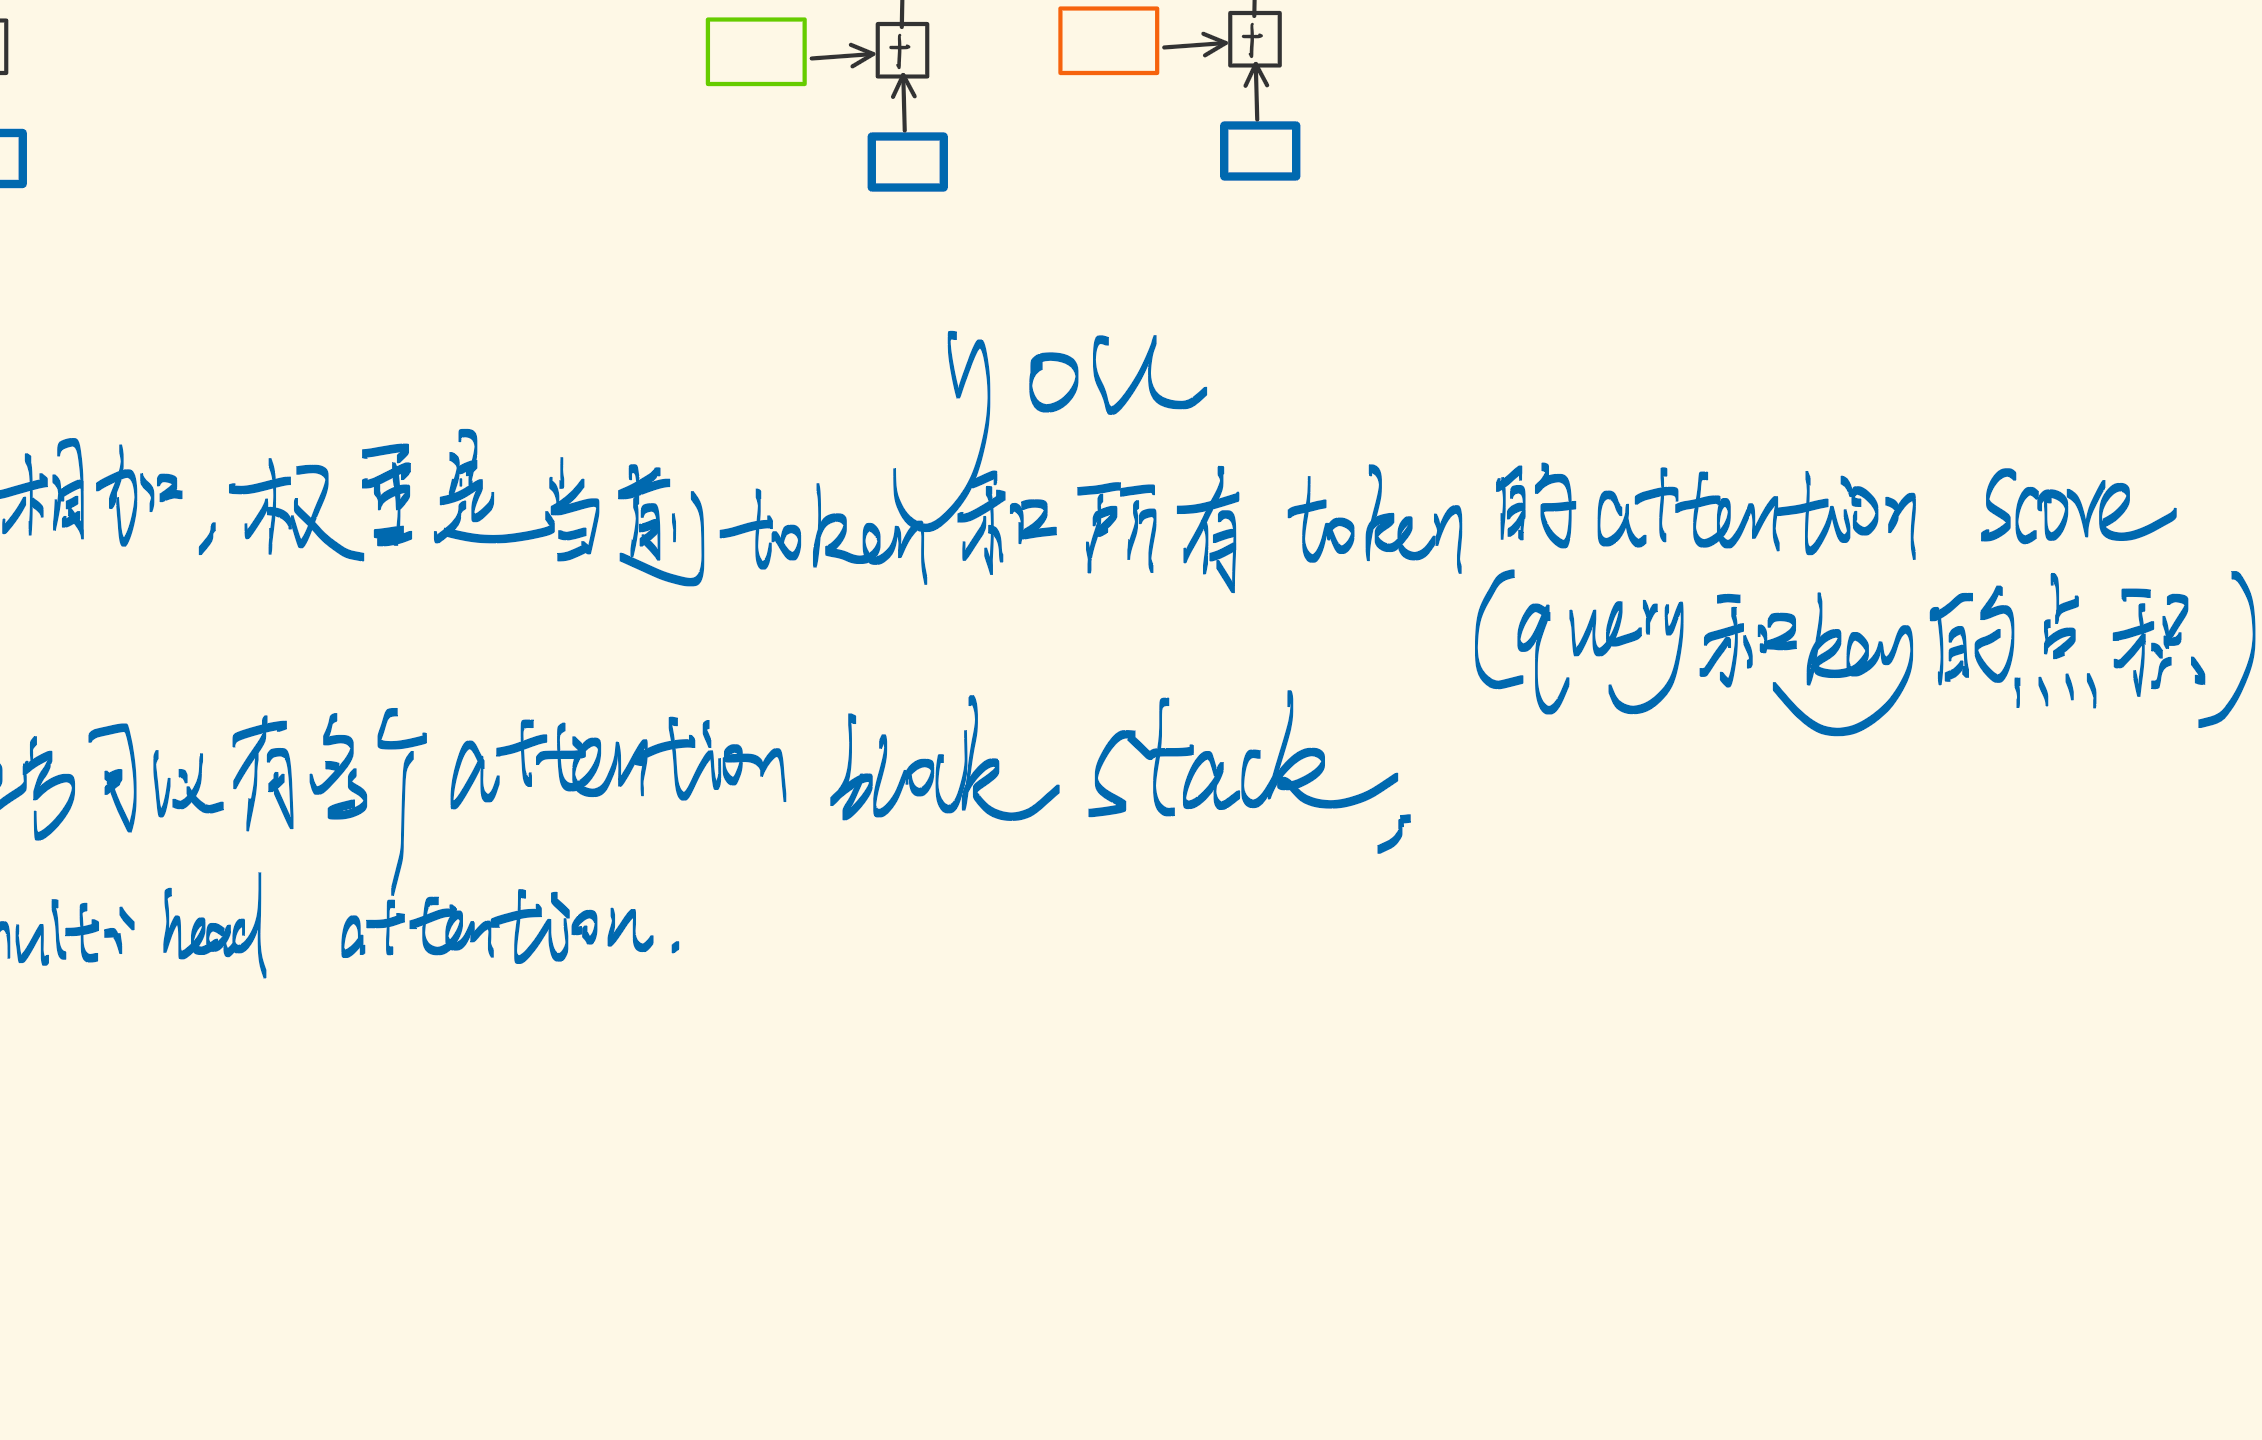 you
相加,权重是当前token和所有token的attention score
(query和key的点积)
可以有多个attention block stack,
multi head attention.